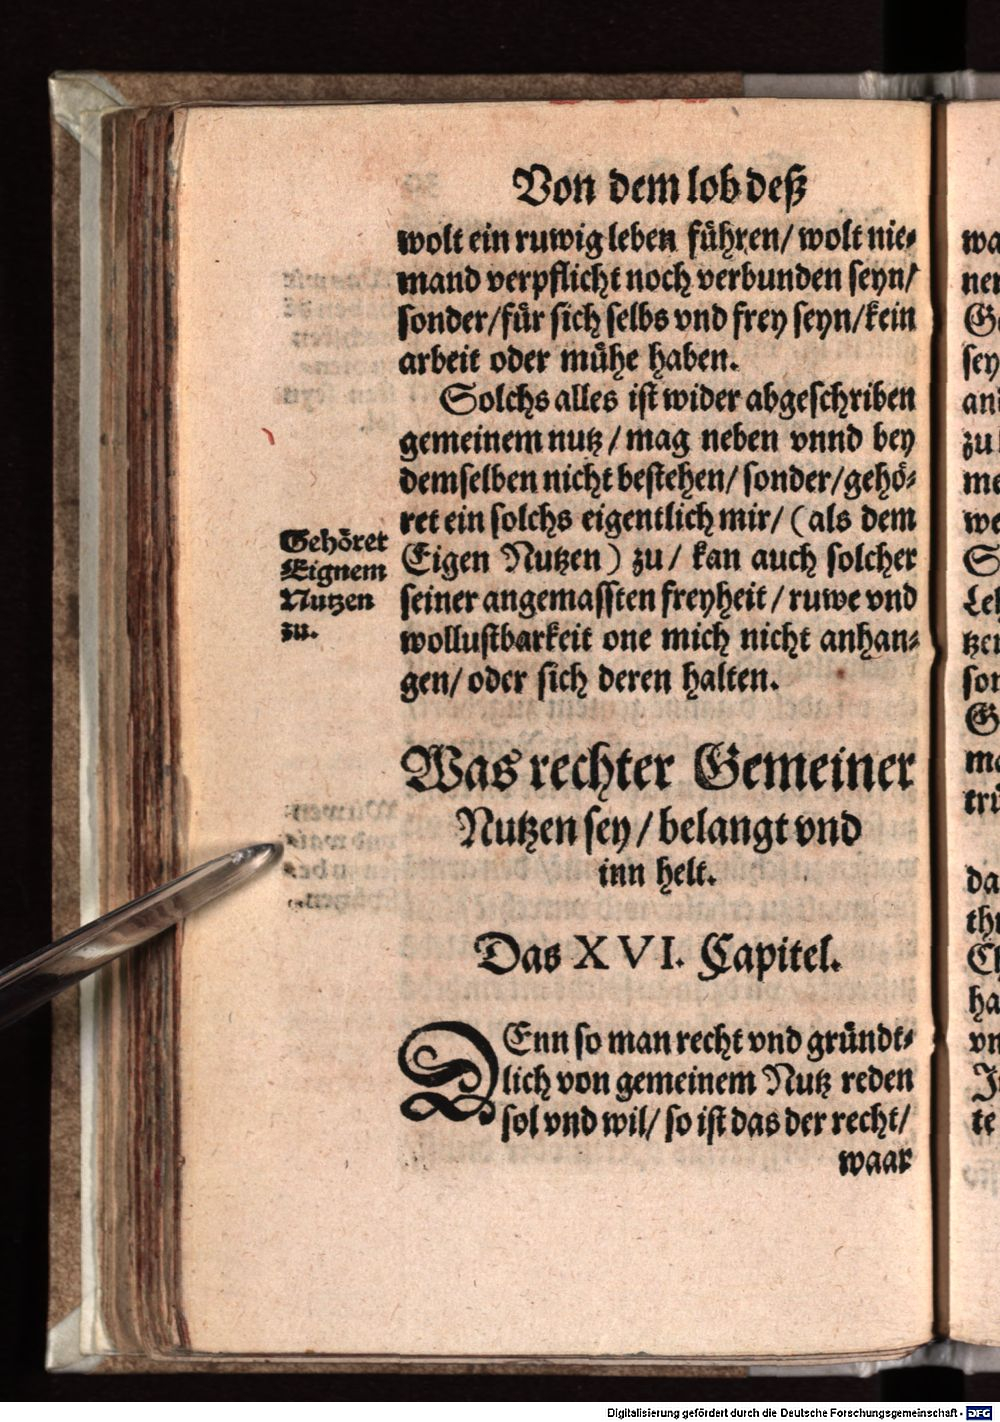 Von dem lob deß
wolt ein ruwig leben führen/ wolt nie-
mand verpflicht noch verbunden seyn/
sonder/für sich selbs vnd frey seyn/kein
arbeit oder mühe haben.
Solchs alles ist wider abgeschriben
gemeinem nutz / mag neben vnnd bey
demselben nicht bestehen/ sonder/gehö-
ret ein solchs eigentlich mir/ (als dem
Eigen Nutzen) zu/ kan auch solcher
seiner angemaßten freyheit / ruwe vnd
wollustbarkeit one mich nicht anhan-
gen/ oder sich deren halten.
Gehöret
Eignem
Nutzen
zu.
Was rechter Gemeiner
Nutzen sey / belangt vnd
inn helt.
Das XVI. Capitel.
DEnn so man recht vnd gründt-
lich von gemeinem Nutz reden
sol vnd wil/ so ist das der recht/
waar
Digitalisierung gefördert durch die Deutsche Forschungsgemeinschaft - DFG